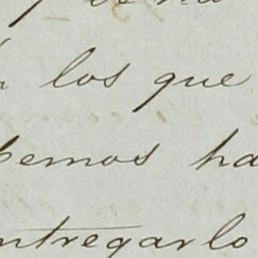 los que
bemos ha
ntregarlo